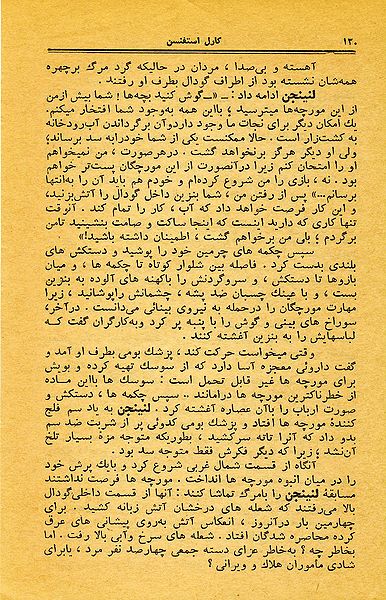 ۱۳۰ کارل استفنسن
آهسته و بی‌صدا ، مردان در حالیکه گرد مرگ برچهره
همه‌شان نشسته بود از اطراف گودال بطرف او رفتند .
لنینجن ادامه داد : ـ «ـ گوش کنید بچه‌ها ! شما بیش ازمن
از این مورچه‌ها میترسید ؛ بااین همه به‌وجود شما افتخار میکنم.
یك امکان دیگر برای نجات ما وجود داردوآن برگرداندن آب‌رودخانه
به کشت‌زار است . حالا ممکنست یکی از شما خودرابه سد برساند،
ولی او دیگر هرگز برنخواهد گشت . درهرصورت ، من نمیخواهم
او را امتحان کنم زیرا درآنصورت از این مورچگان پست‌تر خواهم
بود . نه ، بازی را من شروع کرده‌ام و خودم هم باید آن را به‌انتها
برسانم...» پس از رفتن من ، شما بنزین داخل گودال را آتش‌بزنید،
و این کار فرصت خواهد داد که آب ، کار را تمام کند . آنوقت
تنها کاری که دارید اینست که اینجا ساکت و صامت بنشینید تامن
برگردم ؛ بلی من برخواهم گشت ، اطمینان داشته باشید!»
سپس چکمه های چرمین خود را پوشید و دستکش های
بلندی بدست کرد . فاصله بین شلوار کوتاه تا چکمه ها ، و میان
بازوها تا دستکش ، و سروگردنش را باکهنه های آلوده به بنزین
بست ، و با عینك چسبان ضد پشه ، چشمانش راپوشانید ، زیرا
مهارت مورچگان را درحمله به نیروی بینائی می‌دانست . درآخر،
سوراخ های بینی و گوش را با پنبه پر کرد وبه‌کارگران گفت که
لباسهایش را به بنزین آغشته کنند .
وقتی میخواست حرکت کند ، پزشك بومی بطرف او آمد و
گفت داروئی معجزه آسا دارد که از سوسك تهیه کرده و بویش
برای مورچه ها غیر قابل تحمل است : سوسك ها بااین ماده
از خطرناکترین مورچه ها درامانند .. سپس چکمه ها ، دستکش و
صورت ارباب را باآن عصاره آغشته کرد . لنینجن به یاد سم فلج
کنندهٔ مورچه ها افتاد و پزشك بومی کدوئی پر از شربت ضد سم
بدو داد که آنرا تاته سرکشید ، بطوریکه متوجه مزهٔ بسیار تلخ
آن‌نشد ؛ زیرا که دیگر فکرش فقط متوجه سد بود .
آنگاه از قسمت شمال غربی شروع کرد و بایك پرش خود
را در میان انبوه مورچه ها انداخت . مورچه ها فرصت نداشتند
مسابقهٔ لنینجن را بامرگ تماشا کنند : آنها از قسمت داخلی‌گودال
بالا می‌رفتند که شعله های درخشان آتش زبانه کشید . برای
چهارمین بار درآنروز ، انعکاس آتش به‌روی پیشانی های عرق
کرده محاصره شدگان افتاد . شعله های سرخ وآبی بالا رفت . اما
بخاطر چه ؟ به‌خاطر عزای دسته جمعی چهارصد نفر مرد ، یابرای
شادی مأموران هلاك و ویرانی ؟